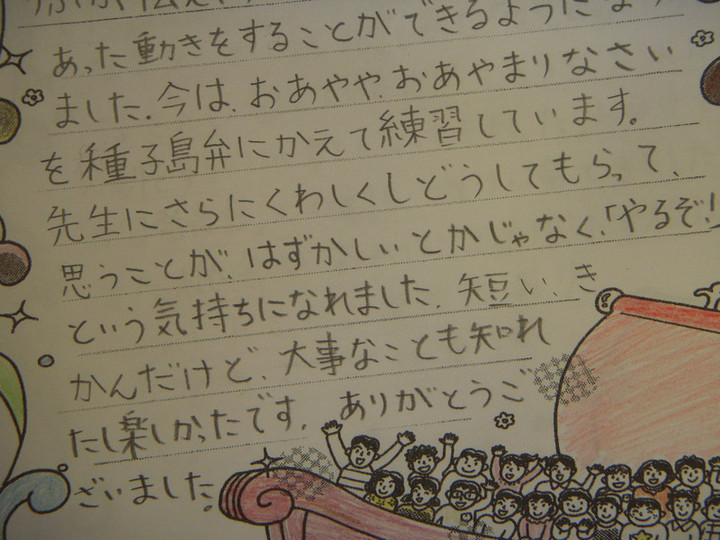 あった動きをすることができるようになり
ました。今は、おあやや、おあやまりなさい
を種子島弁にかえて練習しています。
先生にさらにくわしくしどうしてもらって、
思うことが、はずかしいとかじゃなく、「やるぞ!」
という気持ちになれました。短い、き
かんだけど、大事なことも知れ
たし楽しかったです。ありがとうご
ざいました。